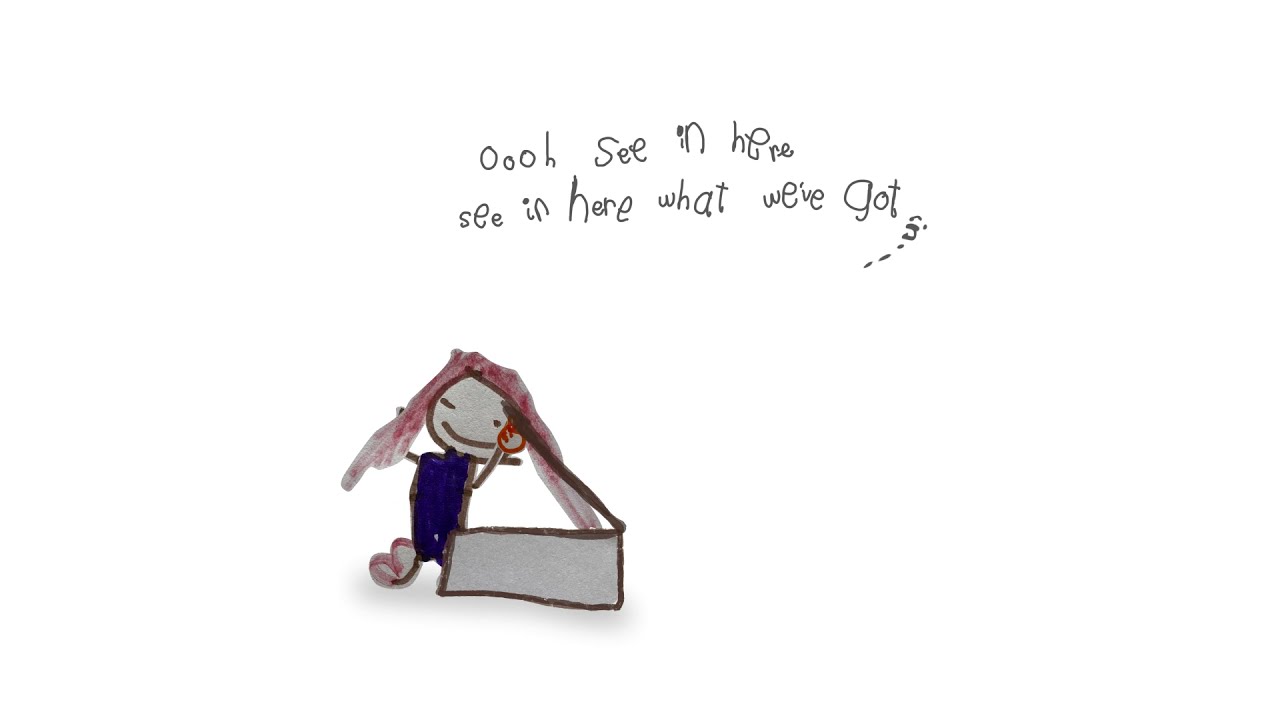 Oooh see in here
see in here what we've got